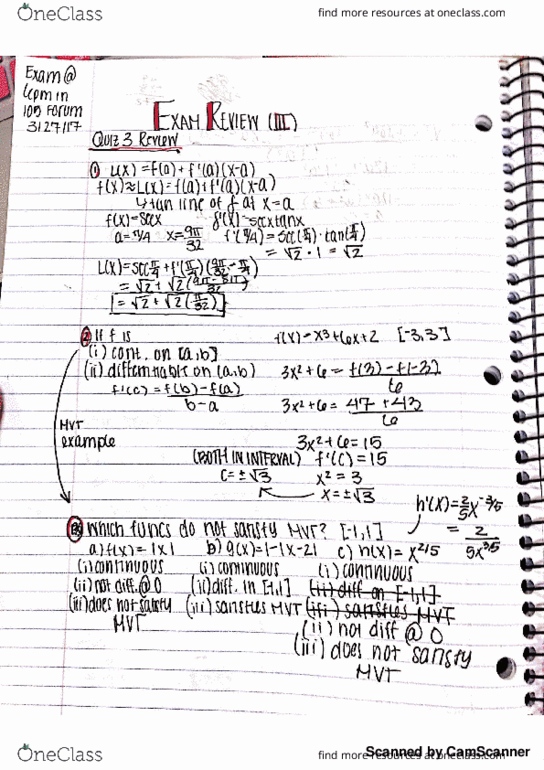 OneClass
find more resources at oneclass.com
Exam @
6pm in
100 Forum
3127117
EXAM REVIEW (III)
Quiz 3 Review
① L(x) = f(a) + f'(a)(x-a)
f(x) ≈ L(x) = f(a) + f'(a)(x-a)
↳ tan line of f at x=a
f(x)=secx f'(x)=secxtanx
a=π/4 x=9π/32 f'(π/4) = sec(π/4)·tan(π/4)
= √2 · 1 = √2
L(x) = sec π/4 + f'(π/4)(9π/32 - π/4)
= √2 + √2(9π-8π/32)
= √2 + √2(π/32)
② If f is f(x) = x³+6x+2 [-3,3]
(i) cont. on [a,b]
(ii) differentiable on (a,b) 3x²+6 = f(3)-f(-3)/6
f'(c) = f(b)-f(a)/b-a 3x²+6 = 47+43/6
MVT
example
3x²+6=15
(BOTH IN INTERVAL) f'(c)=15
c=±√3 x²=3
x=±√3
h'(x)=2/5x^-3/5
= 2/5x^3/5
③ Which funcs do not satisfy MVT? [-1,1]
a) f(x)=|x| b) g(x)=1-|x-2| c) h(x)=x^2/5
(i) continuous (i) continuous (i) continuous
(ii) not diff. @ 0 (ii) diff. in [-1,1] (ii) diff on [-1,1]
(iii) does not satisfy (iii) satisfies MVT (iii) satisfies MVT
MVT (ii) not diff @ 0
(iii) does not satisfy
MVT
Scanned by CamScanner
OneClass
find more resources at oneclass.com